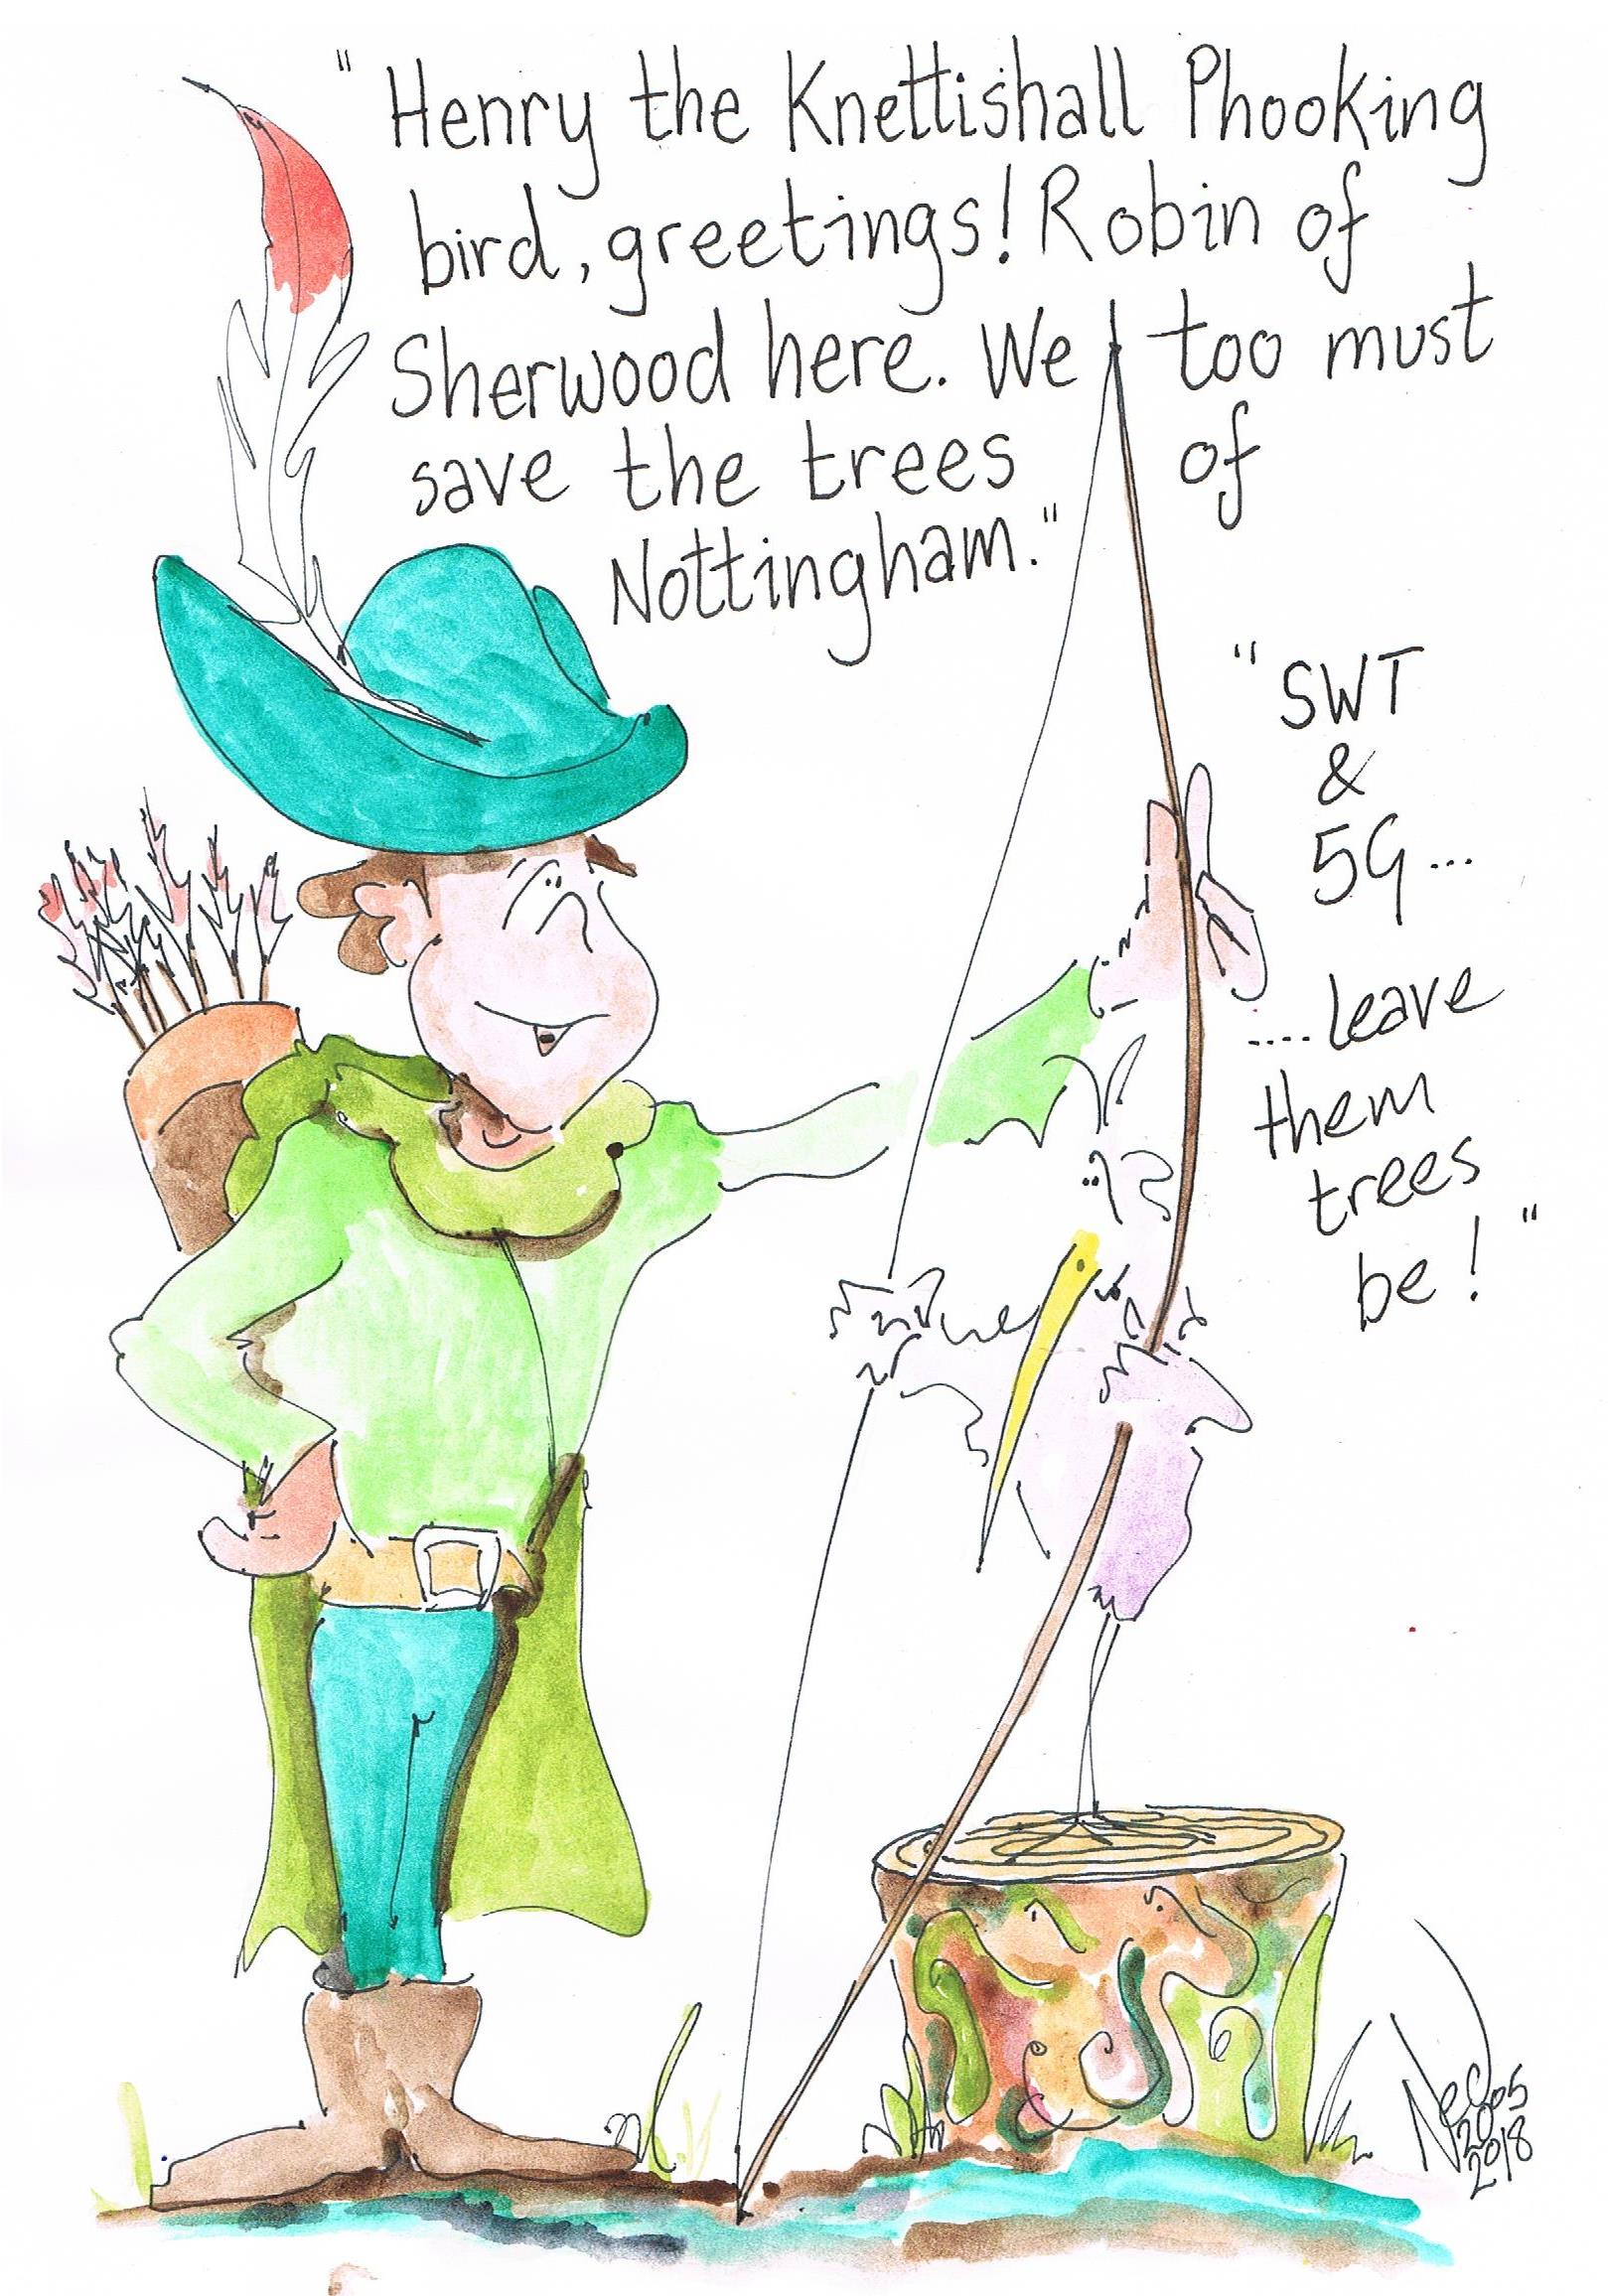 "Henry the Knettishall Phooking
bird, greetings! Robin of
Sherwood here. We too must
save the trees of
Nottingham."
"SWT
&
5G...
....leave
them
trees
be!"
2005
2018